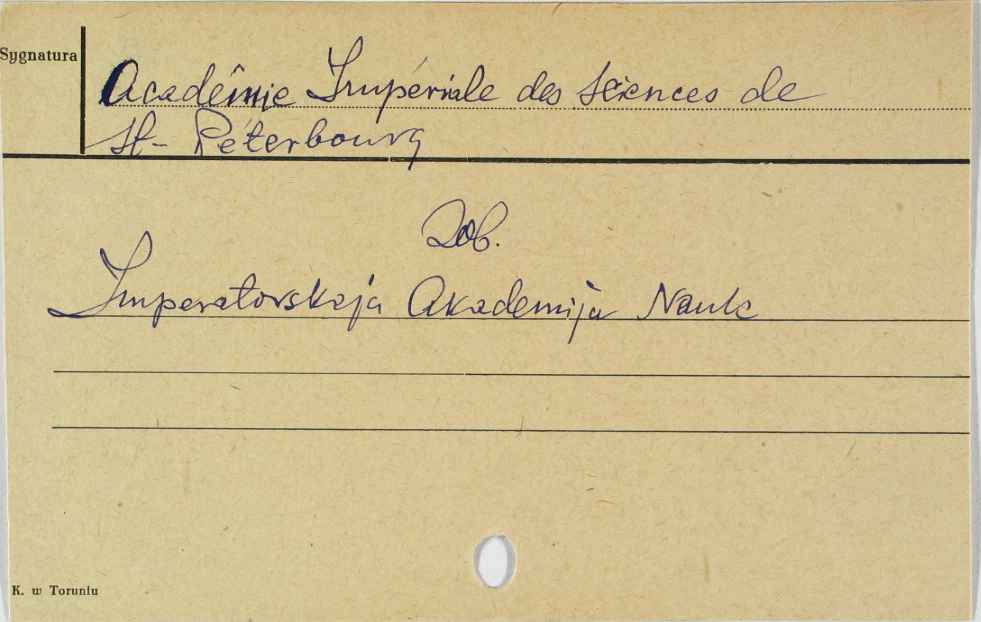 Sygnatura
Académie Impériale des Sciences de
St-Péterbourg
Zob.
Imperatorskaja Akademija Nauk
K. w Toruniu